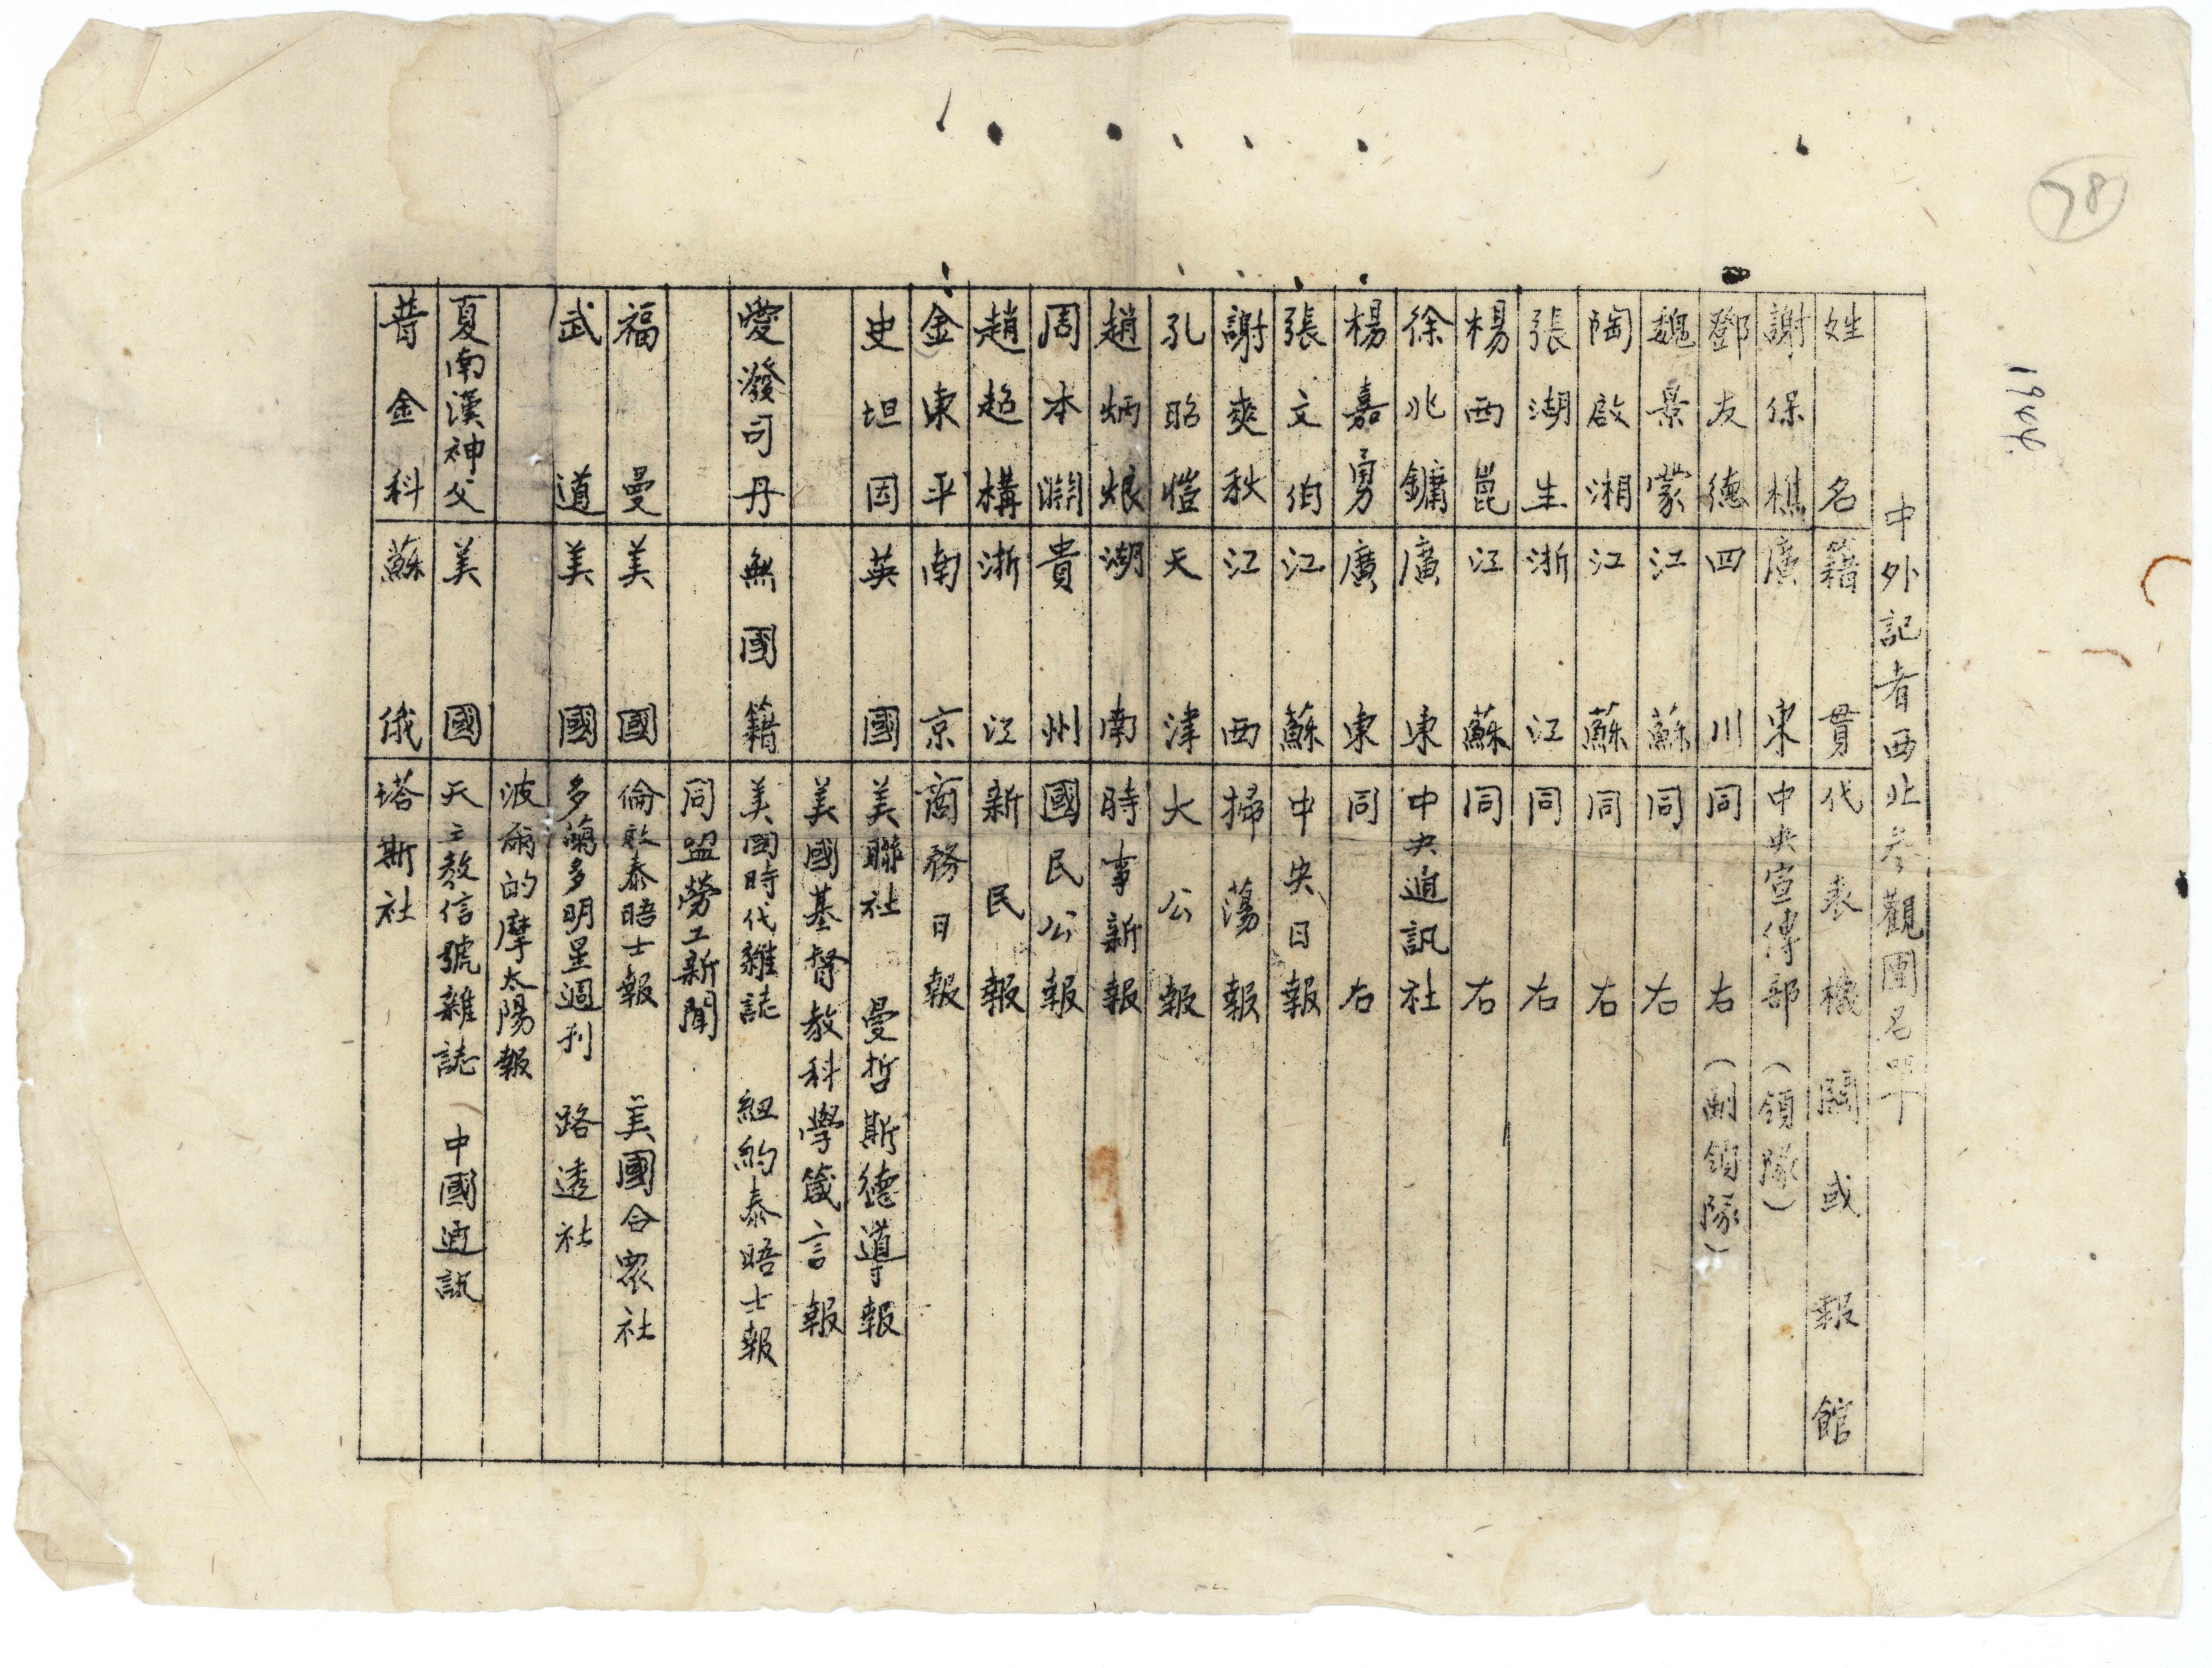 78
1944.
中外記者西北參觀團名單
姓名 籍貫 代表機關或報館
謝保樵 廣東 中央宣傳部(領隊)
鄧友德 四川 同右(副領隊)
魏景蒙 江蘇 同右
陶啟湘 江蘇 同右
張湖生 浙江 同右
楊西崑 江蘇 同右
徐兆鏞 廣東 中央通訊社
楊嘉勇 廣東 同右
張文伯 江蘇 中央日報
謝爽秋 江西 掃蕩報
孔昭愷 天津 大公報
趙炳烺 湖南 時事新報
周本淵 貴州 國民公報
趙超構 浙江 新民報
金東平 南京 商務日報
史坦因 英國 美聯社 曼哲斯德導報
美國基督教科學箴言報
愛潑司丹 無國籍 美國時代雜誌 紐約泰晤士報
同盟勞工新聞
福曼 美國 倫敦泰晤士報 美國合眾社
武道 美國 多蘭多明星週刊 路透社
波爾的摩太陽報
夏南漢神父 美國 天主教信號雜誌 中國通訊
普金科 蘇俄 塔斯社